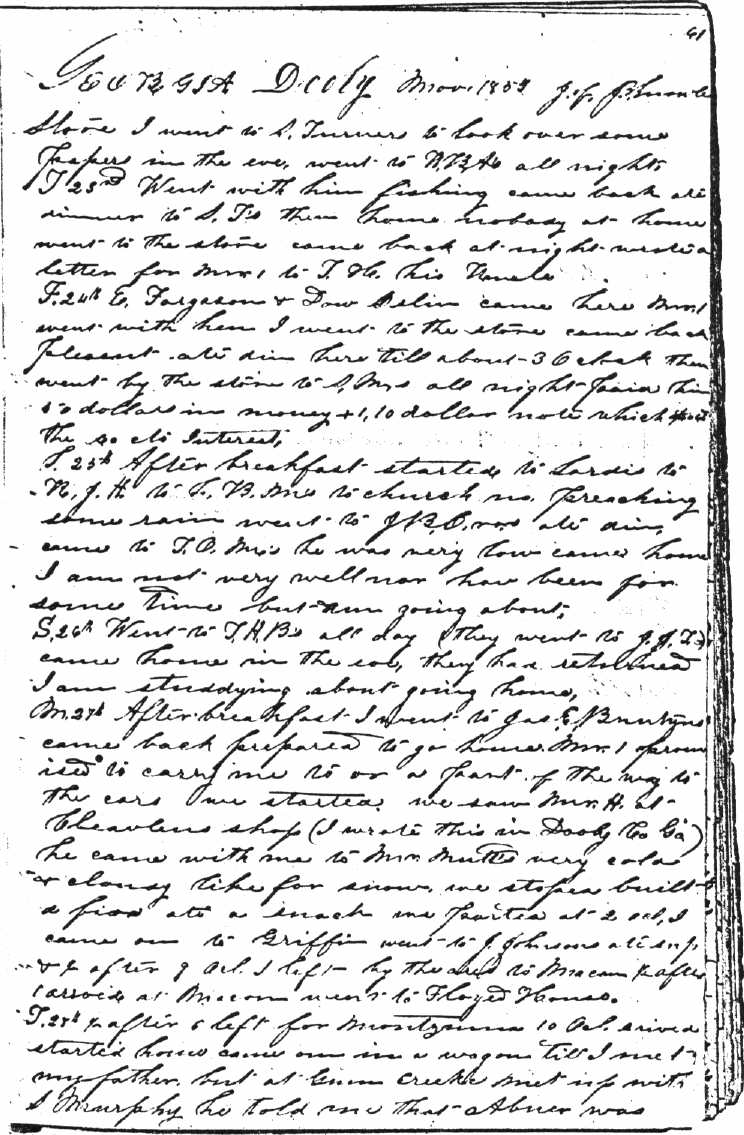 61
GEORGIA Dooly Nov. 1854 J. J.
Store I went to S. Turners to look over some
Papers in the eve, went to all night
T 23rd Went with him fishing came back ate
dinner to S. T's then home nobody at home
went to the store came back at night wrote a
letter for to T. H. his Uncle
F. 24th E. Fargason & Dow came here
went with him I went to the store came back
Pleasent ate din here till about 3 O clock then
went by the store to S, all night Paid him
50 dollars in money & 1, 10 dollar note which
the 40 cts Interest,
S. 25th After breakfast started to Sardis to
N. J. H. to L. B. to church no Preaching
some rain went to J B, ate din,
came to T. O. M's he was very low came home
I am not very well nor have been for
some time but am going about,
S, 26th Went to T. H. B's all day they went to J. J.
came home in the eve, they had returned
I am studdying about going home,
M. 27th After breakfast I went to Jas. E,
came back prepared to go home. prom
ised to carry me to or a part of the way to
the cars we started we saw Mr. H. at
shop (I wrote this in Dooly Co Ga)
he came with me to Mr. very cold
& cloudy like for snow, we stoped built
a fire ate a snack we parted at 2 ocl, I
came on to Griffin went to J. Johnsons ate sup
& ½ after 9 Ocl. I left by the cars to Macon ½ after
1 arrived at Macon went to Floyed House.
T. 28th ½ after 6 left for 10 Ocl. arived
started home came on in a wagon till I met
my father, but at creek met up with
S Murphy he told me that Abner was